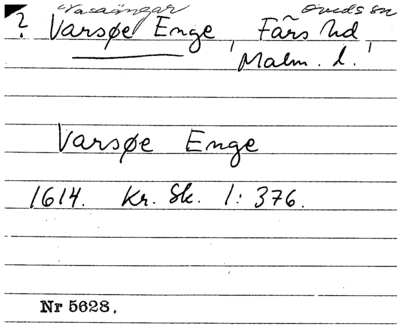 Vasaängar Öveds sn
? Varsøe Enge, Färs hd,
Malm. l.
Varsøe Enge
1614. Kr. Sk. 1: 376.
Nr 5628.